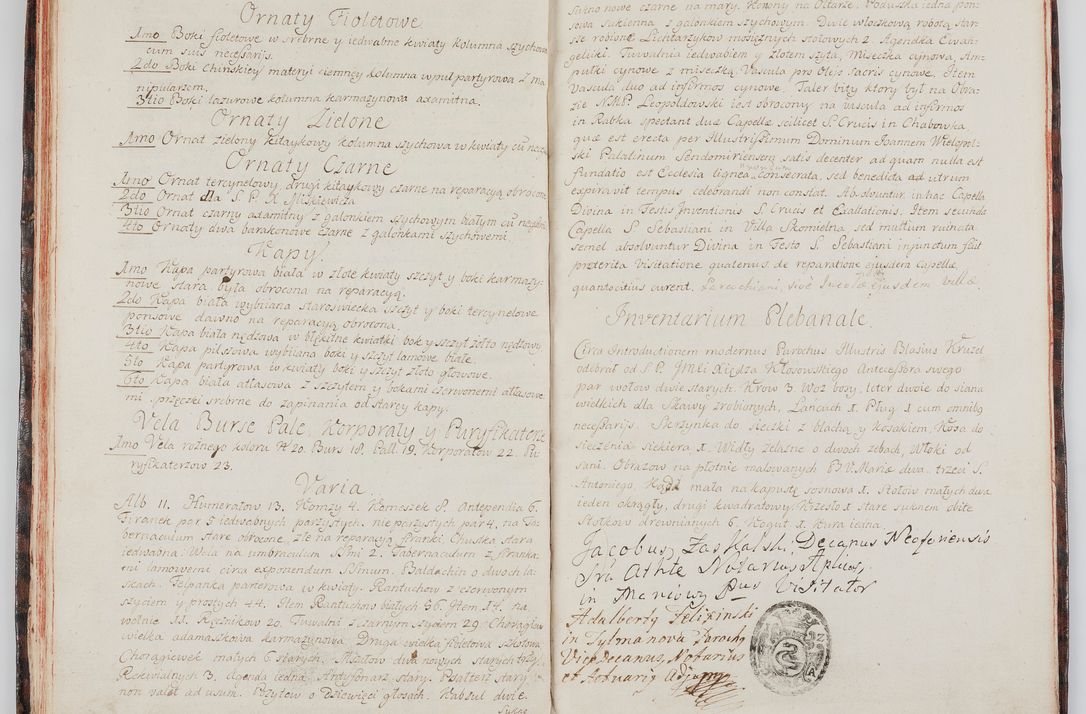 Ornaty Fioletowe
1mo Boki fioletowe w srebrne y iedwabne kwiaty kolumna szychowa
cum suis necessarijs.
2do Boki Chinskiey materyi ciemney kolumna wpuł partyrowa z ma
nipularzem.
3tio Boki lazurowe kolumna karmazynowa axamitna.
Ornaty Zielone
1mo Ornat zielony kitaykowy kolumna szychowa w kwiaty cū nece
Ornaty Czarne
1mo Ornat tercynelowy, drugi kitaykowy czarne na reparacyą obrocone
2do Ornat dla S. P. X. Miskiewicza
3tio Ornat czarny adamitny z galonkiem szychowym białym cū
4to Ornaty dwa barakonowe czarne z galonkami szychowemi.
Kapy.
1mo Kapa partyrowa biała w złote kwiaty szczyt y boki karmazy:
nowe stara była obrocona na reparacyą.
2do Kapa biała wybiiana staroswiecka szczyt y boki tercynelowe
ponsowe dawno na reparacyą obrocona.
3tio Kapa biała nędzowa w błękitne kwiatki bok y szczyt zołto nędzowy
4to Kapa pilszowa wybiiana boki y szczyt lamowe białe.
5to Kapa partyrowa w kwiaty boki y szczyt złoto głowowe.
6to Kapa biała atłasowa z szczytem y bokami czerwonemi atłasowe:
mi sprzęczki srebrne do zapinania od starey kapy.
Vela Burse Pale, Korporały y Puryfikaterze
1mo Vela roznego koloru Nº 20. Burs 18. Pall 19. Korporałow 22. Pu
ryfikaterzow 23.
Varia
Alb 11. Humerałow 13. Komzy 4. Komeszek 8. Antependia 6.
Firanek par 5 iedwabnych parzystych, nie parzystych par 4, na Ta:
bernaculum stare obrocone, złe na reparacyą firanki, Chustka stara
iedwabna. Wela na umbraculum SSmi 2. Tabernaculum z firanka
mi lamowemi circa exponendum SSmum. Baldachin o dwoch la:
skach. Felpanka parterowa w kwiaty. Rantuchow z czerwonym
szyciem y prostych 44. Item Rantuchow białych 56. Item 14. na
wełnie 11. Ręcznikow 20. Tuwalni z czarnym szyciem 29. Chorągiew
wielka adamaszkowa karmazynowa. Druga wielka fioletowa szkotowa
Chorągiewek małych 6 starych. Mszałow dwa nowych starych trzy
Rekwialnych 3. Agenda iedna. Antyfonarz stary. Psałterz stary
non valet ad usum. Pozytew o Dziewięci głosach. Kabsul dwie
Sukno
Sukno nowe czarne na mary. Kowany na Ołtarze. Poduszka iedna pon:
sowa sukienna z galonkiem szychowym. Dwie włoczkową robotą sta
re robione Lichtarzykow mosięznych stołowych 2. Agendka Ewan
geliki. Tuwalnia iedwabiem y złotem szyta, Miseczka cynowa, Am:
pułki cynowe z miseczką. Vascula pro Oleis Sacris cynowe. Item
Vascula duo ad infirmos cynowe. Taler bity ktory był na Obra:
zie NMP. Leopoldowski iest obrocony na vascula ad infirmos
in Rabka spectant duæ Capellæ scilicet S. Crucis in Chabowka,
quæ est erecta per Illustrissimum Dominum Joannem Wielopol:
ski Palatinum Sendomiriensem satis decenter ad quam nulla est
fundatio est Ecclesia lignea consecrata, sed benedicta ad utrum
expiravit tempus celebrandi non constat. Absolvuntur in hac Capella
Divina in Festis Inventionis S. Crucis et Exaltationis. Item secunda
Capella S. Sebastiani in Villa Skomielna sed multum ruinata
semel absolvuntur Divina in Festo S. Sebastiani injunctum fuit
præterita Visitatione quatenus de reparatione ejusdem Capellæ
quantocitius curent. Parochiani sive Incolæ ejusdem villæ.
Inventarium Plebanale
Circa Introductionem modernus Parochus Illustris Blasius Kruzel
odebrał od S. P. JMci Xiędza Kłosowskiego Antecessora swego
par wołow dwie starych. Krow 3. Woz bosy, leter dwoie do siana
wielkich dla Skawy zrobionych, Łancuch 1. Pług 1. cum omnibo
necessarijs. Skrzynka do sieczki z blachą y kosakiem, Kosa do
sieczenia siekiera 1. Widły zelazne o dwoch zebach, Włoki od
sani. Obrazow na płotnie malowanych B V. Mariæ dwa trzeci S.
Antoniego, Kadz mała na kapustę sosnowa 1. Stołow małych dwa
ieden okrągły, drugi kwadratowy. Krzesło 1 stare suknem obite
Stołkow drewnianych 6. Kogut 1. Kura iedna.
Jacobus Zaskalski Decanus Neoforiensis
Notarius Aplicus
Visitator
Adalberty
in Tylmanowa Paroch
Vice Decanus, Notarius
et Actuariy